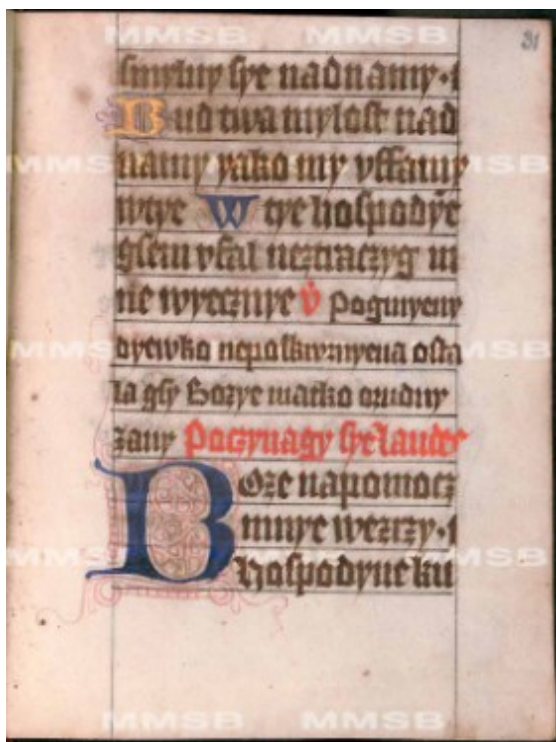 31
smyluy sye nad namy · i
Bud twa mylost nad
namy yako my vffamy
wtye W tye hospodye
gsem vfal neztraczyg m
ne wyecznye v̇ Pogmyeny
dyewko neposkwrnyena osta
la gsy Bozye matko oroduy
zany Poczynagy sye laudes
Boze napomocz
mnye wezrzy · i
Hospodyne ku